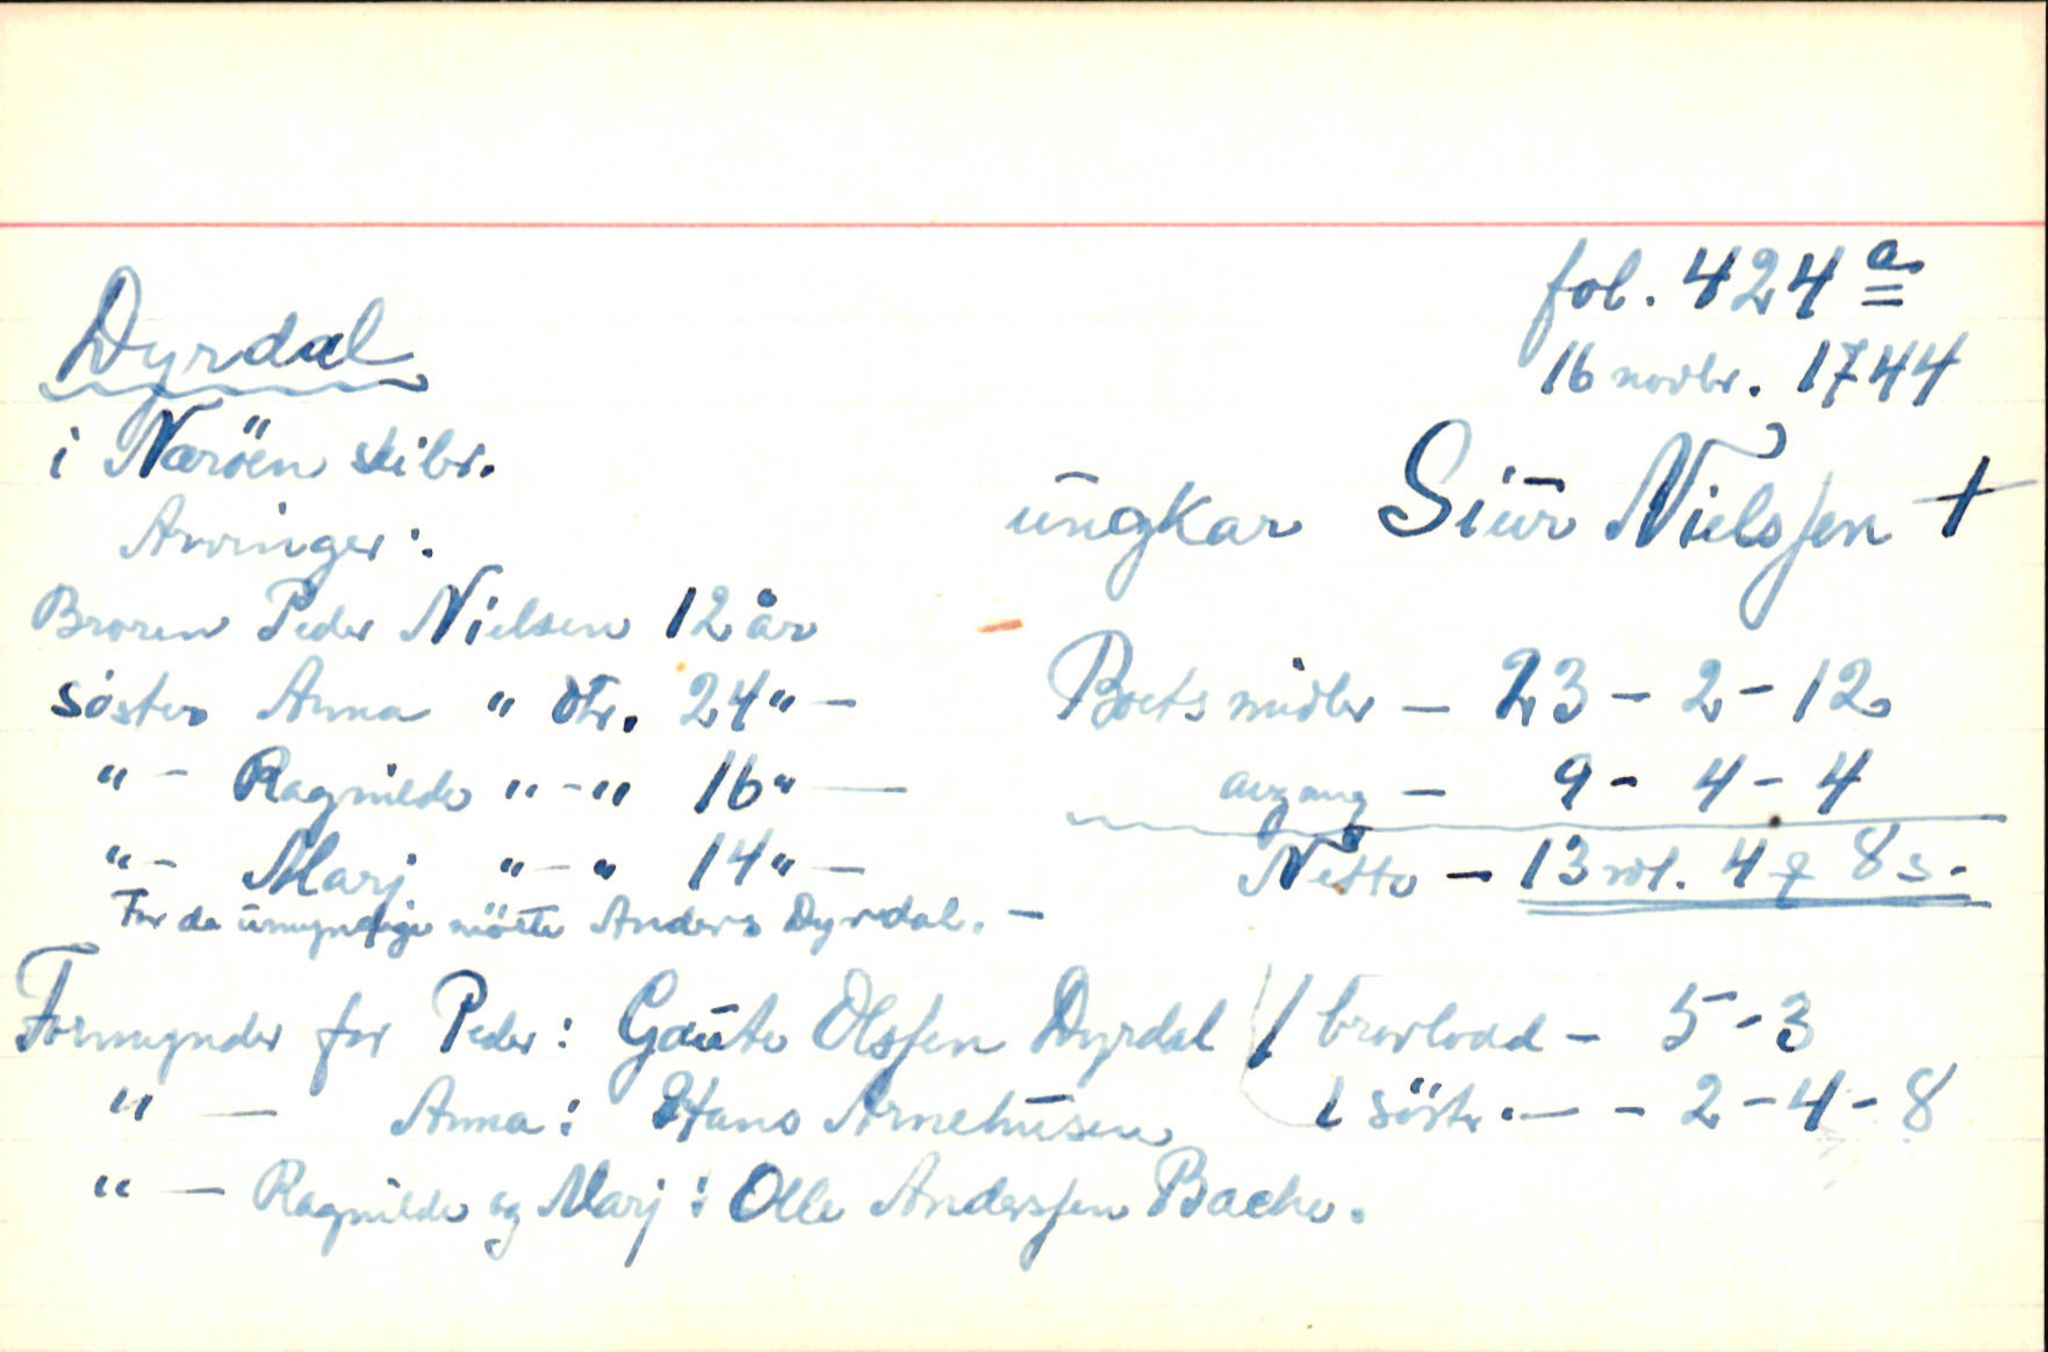 fol. 424 a
16 novbr. 1744
Dyrdal
i Næröen skibr.
ungkar Siur Nielssen +
Arvinger:
Broren Peder Nielsen 12 år
söster Anna " dtr. 24 " -
" - Ragnilde " - " 16 " -
" - Marj " - " 14 " -
For de umyndige mötte Anders Dyrdal. -
Boets midler - 23 - 2 - 12
avgang - 9 - 4 - 4
Netto - 13 rdl. 4 8 s.
Formynder for Peder: Gaute Olssen Dyrdal
" - Anna: Hans Arnetusen
" - Ragnilde og Marj: Olle Anderssen Bache.
1 brorlodd - 5 - 3
1 söstr. - - 2 - 4 - 8